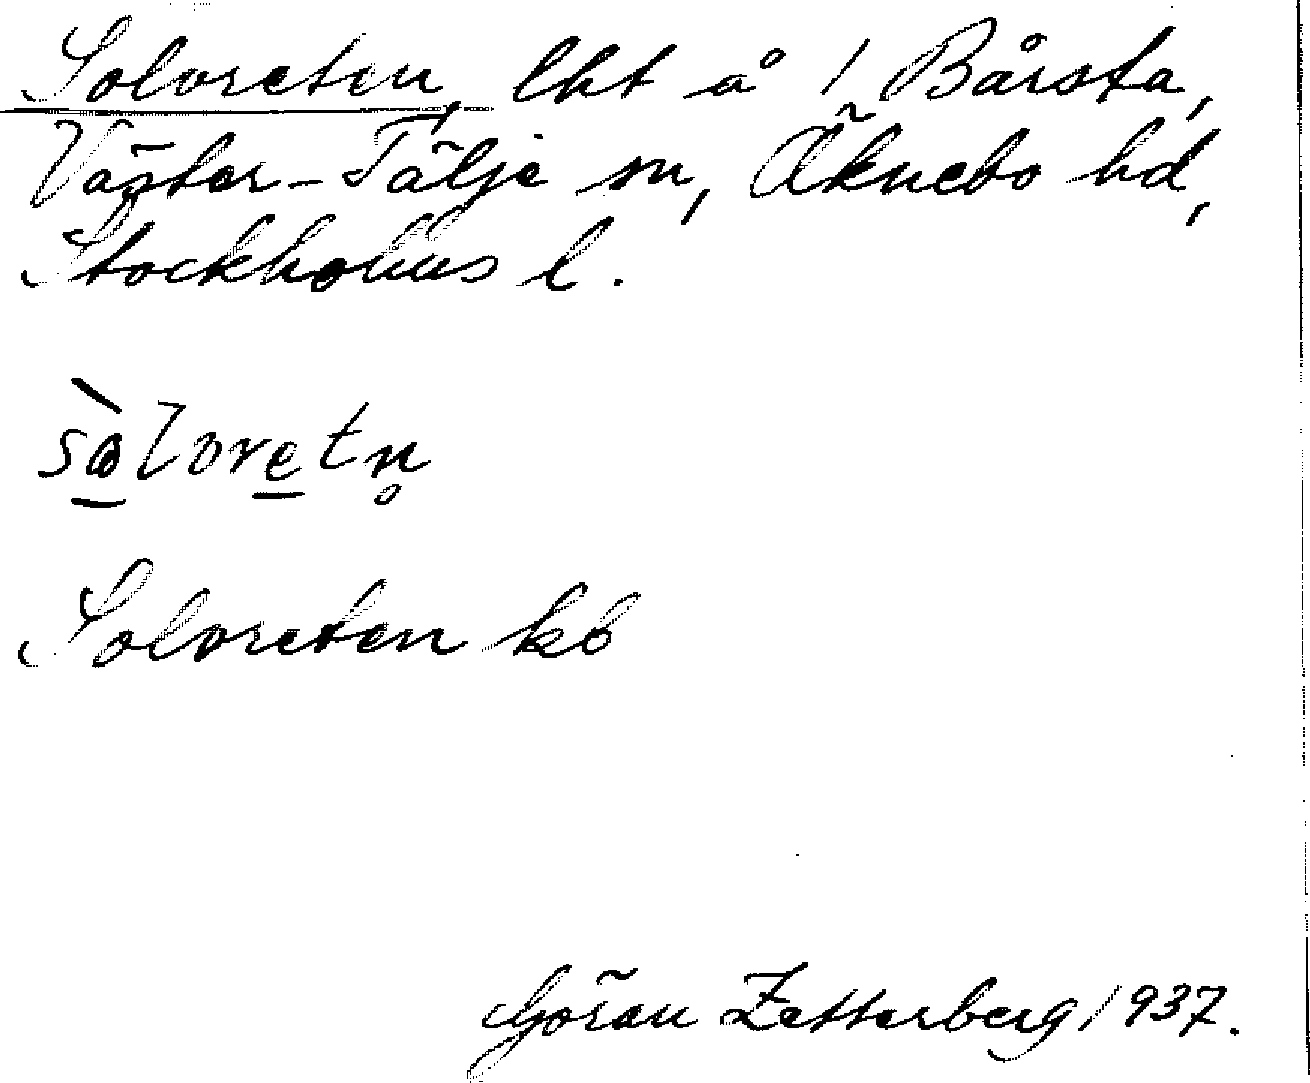 Solvreten, lht å 1 Bårsta,
Väster-Tälje sn, Öknebo hd,
Stockholms l.
sòlvretn̥
Solvreten kb
Göran Zetterberg 1937.